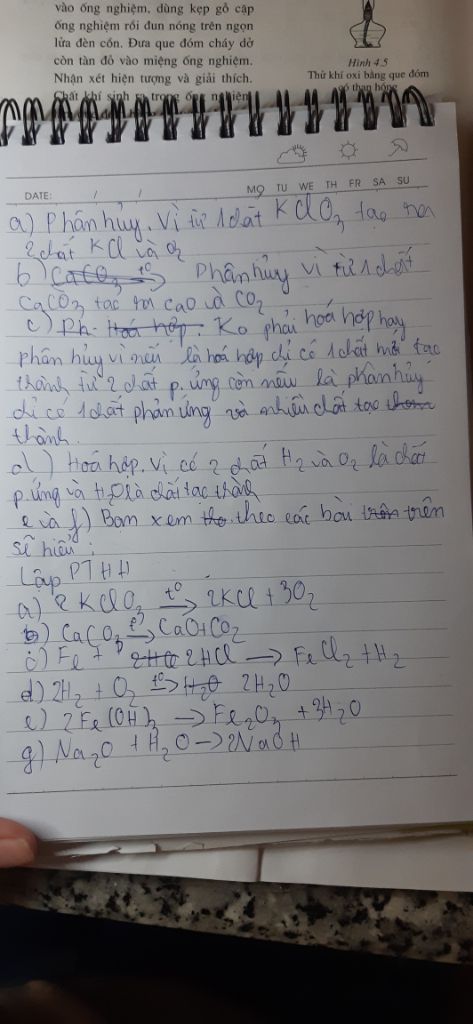 vào ống nghiệm, dùng kẹp gỗ cặp
ống nghiệm rồi đun nóng trên ngọn
lửa đèn cồn. Đưa que đóm cháy dở
còn tàn đỏ vào miệng ống nghiệm.
Nhận xét hiện tượng và giải thích.
Chất khí sinh ra trong ống nghiệm
Hình 4.5
Thử khí oxi bằng que đóm
có than hồng
DATE: / / MO TU WE TH FR SA SU
a) Phân hủy. Vì từ 1 chất KClO3 tạo ra
2 chất KCl và O2
b) CaCO3 t° → Phân hủy vì từ 1 chất
CaCO3 tạo ra CaO và CO2
c) Ph. Hoá hợp. Ko phải hoá hợp hay
phân hủy vì nếu là hoá hợp chỉ có 1 chất mới tạo
thành từ 2 chất p. ứng còn nếu là phân hủy
chỉ có 1 chất phản ứng và nhiều chất tạo
thành.
d) Hoá hợp. Vì có 2 chất H2 và O2 là chất
p. ứng và H2O là chất tạo thành
e và f) Bạn xem theo các bài trên
sẽ hiểu;
Lập PTHH
a) 2KClO3 t° → 2KCl + 3O2
b) CaCO3 t° → CaO+CO2
c) Fe + 2HCl → FeCl2 + H2
d) 2H2 + O2 t° → H2O 2H2O
e) 2Fe(OH)3 → Fe2O3 + 3H2O
g) Na2O + H2O → 2NaOH